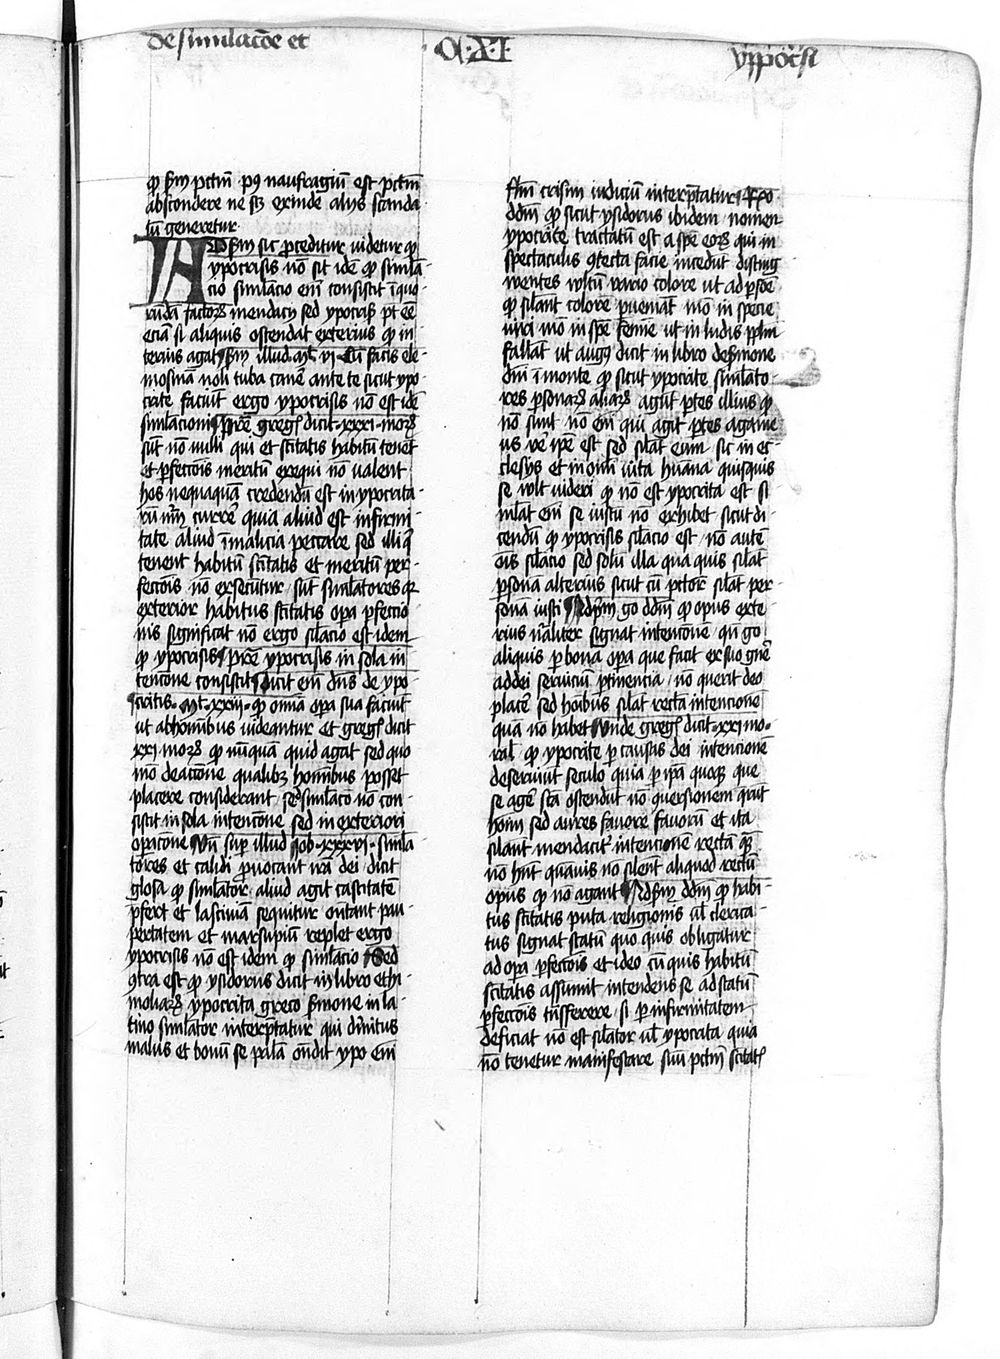 de simulac̄oe et
Q·XI·
yppoc̄si
qꝫ scđm pctm̄ pꝰ naufragiū est pctm̄
abscondere ne sꝫ exinde alijs scanda
lū generetur
AD scđm sic ꝓceditur videtur qꝫ
ypocrisis nō sit idē qꝫ simila-
cio similacio em̄ consistit ī quo
rūdā factoꝝ mendacij sed ypocrisis pt eē
eciā si aliquis ostendat exterius qꝫ in
terius agat scđm illud mt̄ vi· Cū facis ele-
mosinā noli tuba canē ante te sicut ypo
crite faciūt ergo ypocrisis nō est idē
similacioni prēe greg̃ dicit ·xxxi· moꝝ
sūt nō nulli qui et sc̄itatis habitū tenēt
et ꝑfecc̄ois meritū exequi nō valent
hos nequaquā credendū est in ypocrita
rū nūm̄ currē quia aliud est infirmi
tate aliud ī malicia peccare sed illi qͥ
tenent habitū sc̄itatis et meritū per-
fecc̄ois nō exsecūtur sūt similatores qꝫ
exterior habitus sc̄itatis oꝑa ꝑfecc̄io
nis significat nō ergo silacio est idem
qꝫ ypocrisis prēe ypocrisis in sola in
tenc̄one consistit dicit em̄ dn̄s de ypo
critis· Mt·xxiij· qꝫ omnia oꝑa sua faciūt
ut ab hominibus videantur et greg̃ dicit
xxxi moꝝ qꝫ nūquā quid agāt sed quo
mō de acc̄one qualibꝫ hominibus possēt
placere considerant sed similac̄o nō con
sistit in sola intenc̄one sed in exteriori
oꝑac̄one vn̄ suꝑ illud Job·xxxvi· simila
tores et calidi ꝓuocant irā dei dicit
glosa qꝫ similator aliud agit castitatē
ꝓfert et lasciuiā sequitur ostentāt pau
pertatem et marsupiū replet ergo
ypocrisis nō est idem qꝫ similacio Sed
ꝯtra est qꝫ ysidorus dicit in libro ethi
moliaꝝ ypocrita greco ẜmone in la-
tino similator interp̄tatur qui dū intus
malus et bonū se palā ōndit ypo em̄
flm̄ crisim iudiciū interp̄tatur Rn̄o
ddm̄ qꝫ sicut ysidorus ibidem nomen
ypocrite tractatū est a spē eoꝝ qui in
spectaculis ꝯtecta facie incedūt disting
wentes vltū vario colore ut ad ꝑsōe
qꝫ silant colore ꝑueniāt mō in specie
viri mō in spē femie ut in ludis ppl̄m
fallāt ut augꝰ dicit in libro de ẜmone
dn̄i ī monte qꝫ sicut ypocrite similato-
res ꝑsonaꝝ aliaꝝ agūt ꝑtes illius qꝫ
nō sunt nō em̄ qui agit ꝑtes agame
nis ve ip̄e est sed silat eum sic in ec-
clesijs et in omni vita hūana quisquis
se vlt videri qꝫ nō est ypocrita est si
mlat em̄ se iustū nō exhibet sicut di-
cendū qꝫ ypocrisis silacio est nō autē
ōis silacio sed solū illa qua quis silat
ꝑsonā alterius sicut cū pctor silat per
sonā iusti Ad pm̄ go ddm̄ qꝫ opus exte-
rius naliter signat intenc̄one qn̄ go
aliquis ꝑ bona oꝑa que facit ex suo gn̄e
ad dei seruiciū ꝑtinencia nō querit deo
placē sed hoībus silat rectā intencionē
quā nō habet vnde greg̃ dicit·xxxi mo-
ral qꝫ ypocrite ꝑ causas dei intencionē
deseruiūt seculo quia ꝑ ip̄a quoqꝫ que
se agē sc̄a ostendūt nō ꝯuersionem q̄rūt
hoīm sed aures fauorē fauorū et ita
silant mendacit̄ intencionē rectā quā
nō hn̄t quāuis nō silent aliquod rectū
opus qꝫ nō agant Ad scđm ddm̄ qꝫ habi-
tus sc̄itatis puta religionis ul clerica-
tus signat statū quo quis obligatur
ad oꝑa ꝑfecc̄ois et ideo cū quis habitū
sc̄itatis assumit intendens se ad statū
ꝑfecc̄ois tn̄sferere si ꝑ infirmitatem
deficiat nō est silator ul ypocrita quia
nō tenetur manifestare suū pctm̄ sc̄itatꝭ